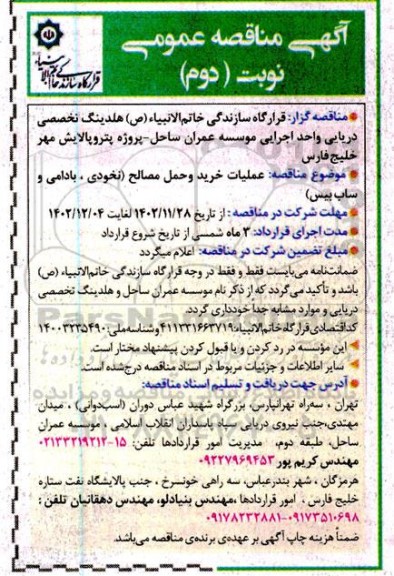 آگهی مناقصه عمومی
نوبت (دوم)
قرارگاه سازندگی خاتم الانبیاء
مناقصه گزار: قرارگاه سازندگی خاتم‌الانبیاء (ص) هلدینگ تخصصی
دریایی واحد اجرایی موسسه عمران ساحل-پروژه پتروپالایش مهر
خلیج فارس
موضوع مناقصه: عملیات خرید وحمل مصالح (نخودی ، بادامی و
ساب بیس)
مهلت شرکت در مناقصه: از تاریخ ۱۴۰۲/۱۱/۲۸ لغایت ۱۴۰۲/۱۲/۰۴
مدت اجرای قرارداد: ۳ ماه شمسی از تاریخ شروع قرارداد
مبلغ تضمین شرکت در مناقصه: اعلام میگردد
ضمانت‌نامه می‌بایست فقط و فقط در وجه قرارگاه سازندگی خاتم‌الانبیاء (ص)
باشد و تأکید می‌گردد که از ذکر نام موسسه عمران ساحل و هلدینگ تخصصی
دریایی و موارد مشابه جداً خودداری گردد.
کداقتصادی‌قرارگاه‌خاتم‌الانبیاء:۴۱۱۳۳۱۶۶۳۷۱۹وشناسه‌ملی:۱۴۰۰۳۲۳۵۴۹۰
این مؤسسه در رد کردن و یا قبول کردن پیشنهاد مختار است.
سایر اطلاعات و جزئیات مربوط در اسناد مناقصه درج‌شده است.
آدرس جهت دریافت و تسلیم اسناد مناقصه:
تهران ، سه‌راه تهرانپارس، بزرگراه شهید عباس دوران (اسب‌دوانی) ، میدان
مهندی،جنب نیروی دریایی سپاه پاسداران انقلاب اسلامی ، مؤسسه عمران
ساحل، طبقه دوم، مدیریت امور قراردادها تلفن: ۱۵-۰۲۱۳۳۲۱۹۲۱۲
مهندس کریم پور ۰۹۲۲۷۹۶۹۴۵۳
هرمزگان ، شهر بندرعباس، سه راهی خونسرخ ، جنب پالایشگاه نفت ستاره
خلیج فارس ، امور قراردادها ،مهندس بنیادلو، مهندس دهقانیان تلفن :
۰۹۱۷۳۵۱۰۶۹۸-۰۹۱۷۸۲۳۲۸۸۱
ضمناً هزینه چاپ آگهی بر عهده‌ی برنده‌ی مناقصه می‌باشد.